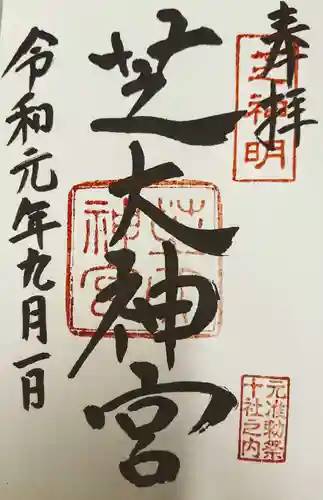 奉拝
芝神明
芝大神宮
元准勅祭
十社之内
令和元年九月一日